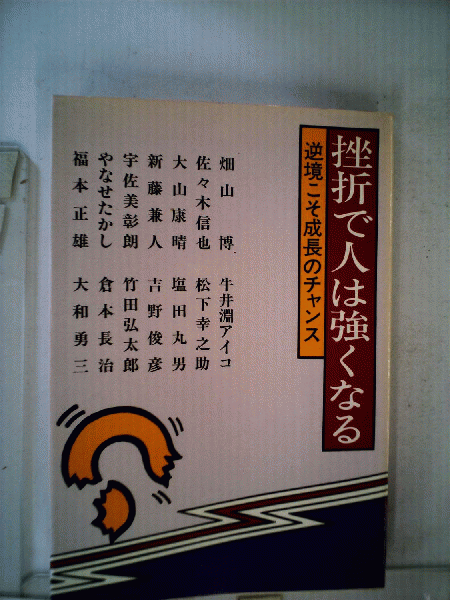 挫折で人は強くなる
逆境こそ成長のチャンス
畑山 博 牛井淵アイコ
佐々木信也 松下幸之助
大山康晴 塩田丸男
新藤兼人 吉野俊彦
宇佐美彰朗 竹田弘太郎
やなせたかし 倉本長治
福本正雄 大和勇三